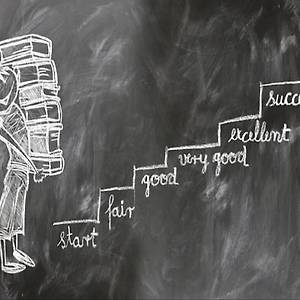 start
fair
good
very good
excellent
succe